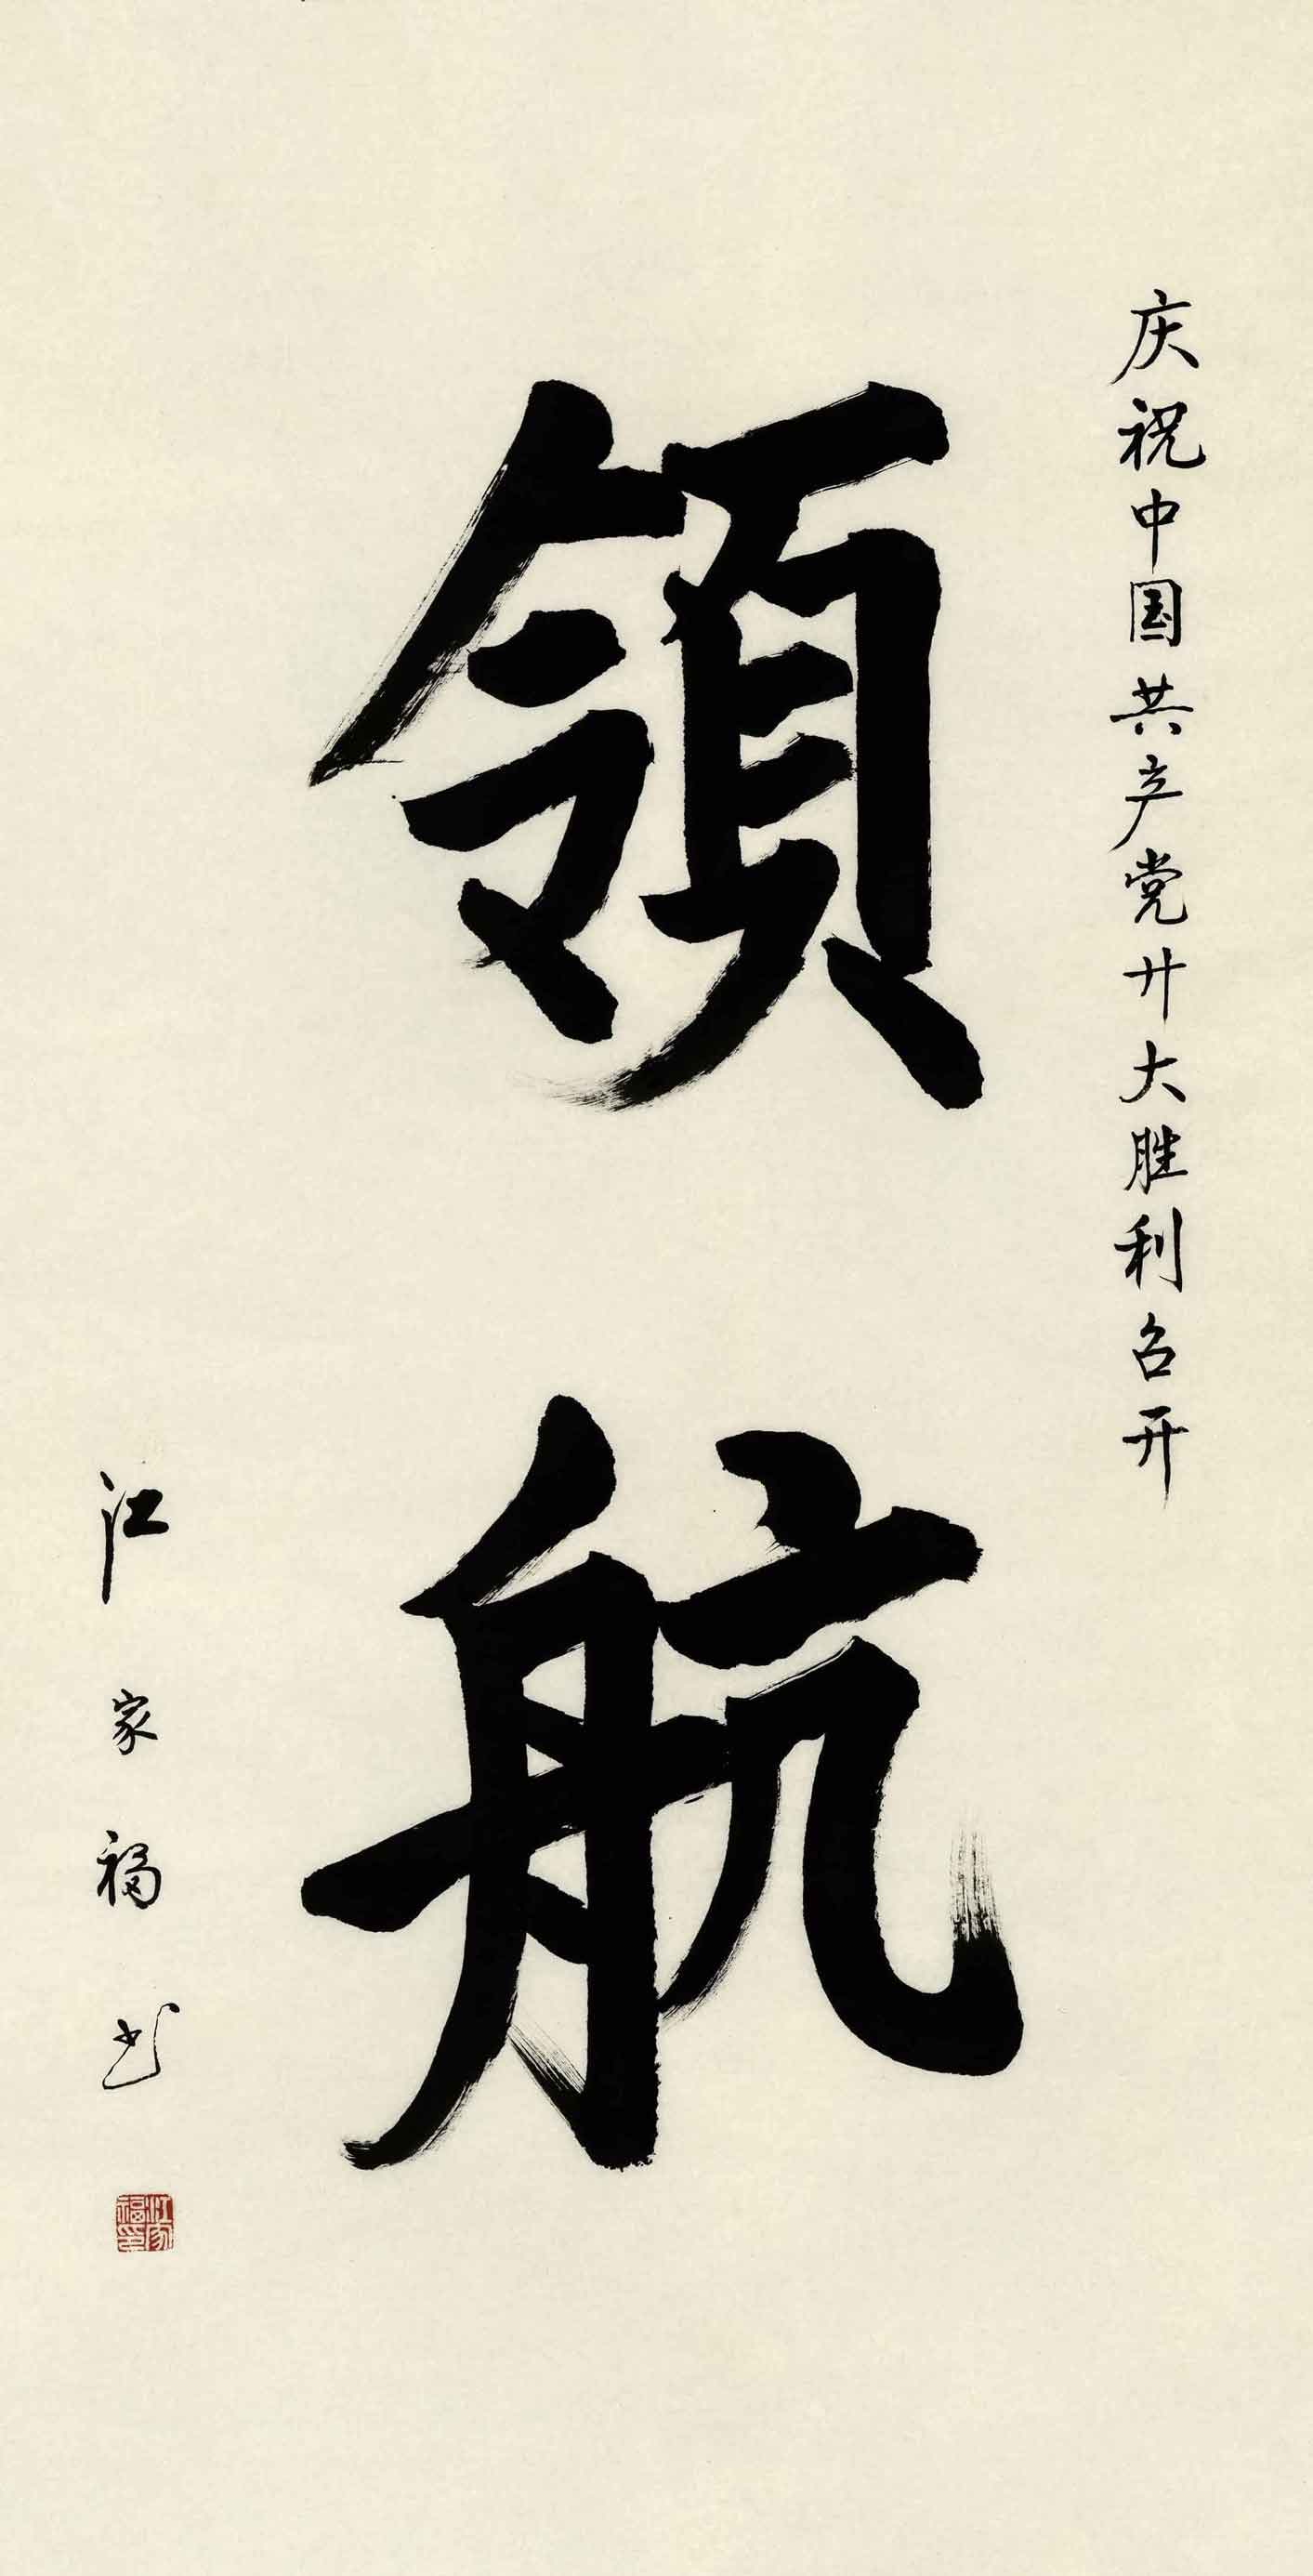 庆祝中国共产党廿大胜利召开
領航
江家福书
江家福印